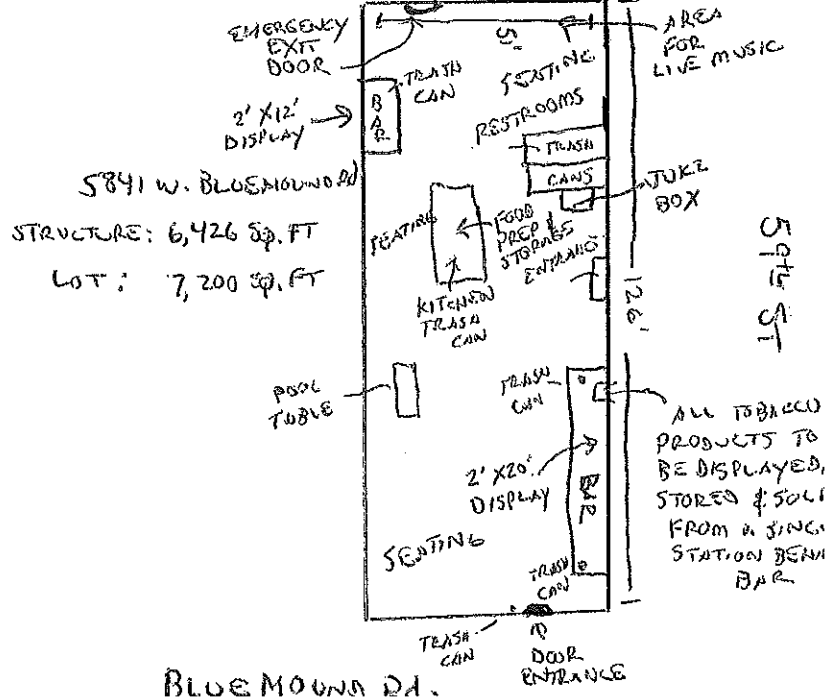 EMERGENCY
EXIT
DOOR
51'
AREA
FOR
LIVE MUSIC
SEATING
TRASH
CAN
BAR
2' X12'
DISPLAY
RESTROOMS
TRASH
CANS
JUKE
BOX
5841 W. BLUEMOUND Rd
STRUCTURE: 6,426 Sq. FT
LOT: 7,200 Sq. FT
SEATING
FOOD
PREP &
STORAGE
KITCHEN
TRASH
CAN
ENTRANCE
126'
59th ST
POOL
TABLE
TRASH
CAN
2' X20'
DISPLAY
BAR
ALL TOBACCO
PRODUCTS TO
BE DISPLAYED,
STORED & SOL
FROM A SING
STATION
BAR
SEATING
TRASH
CAN
TRASH
CAN
DOOR
ENTRANCE
BLUEMOUND Rd.